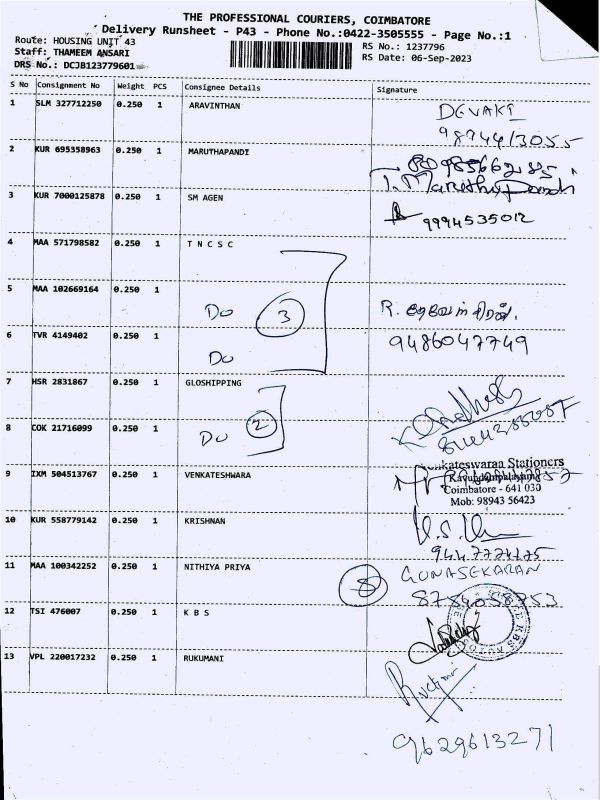 THE PROFESSIONAL COURIERS, COIMBATORE
Delivery Runsheet - P43 - Phone No.:0422-3505555 - Page No.:1
Route: HOUSING UNIT 43
RS No.: 1237796
Staff: THAMEEM ANSARI
RS Date: 06-Sep-2023
DRS No.: DCJB123779601
S No Consignment No Weight PCS Consignee Details Signature
1 SLM 327712250 0.250 1 ARAVINTHAN DEVAKI
2 KUR 695358963 0.250 1 MARUTHAPANDI
3 KUR 7000125878 0.250 1 SM AGEN
9994535012
4 MAA 571798582 0.250 1 T N C S C
5 MAA 102669164 0.250 1
Do 3 R.
6 TVR 4149402 0.250 1 9486047749
Do
7 HSR 2831867 0.250 1 GLOSHIPPING
8 COK 21716099 0.250 1
Do 2
kateswaraa Stationers
9 IXM 504513767 0.250 1 VENKATESHWARA
Coimbatore - 641 030
Mob: 98943 56423
10 KUR 558779142 0.250 1 KRISHNAN
11 MAA 100342252 0.250 1 NITHIYA PRIYA GUNASEKARAN
8
12 TSI 476007 0.250 1 K B S
13 VPL 220017232 0.250 1 RUKUMANI
9629613271